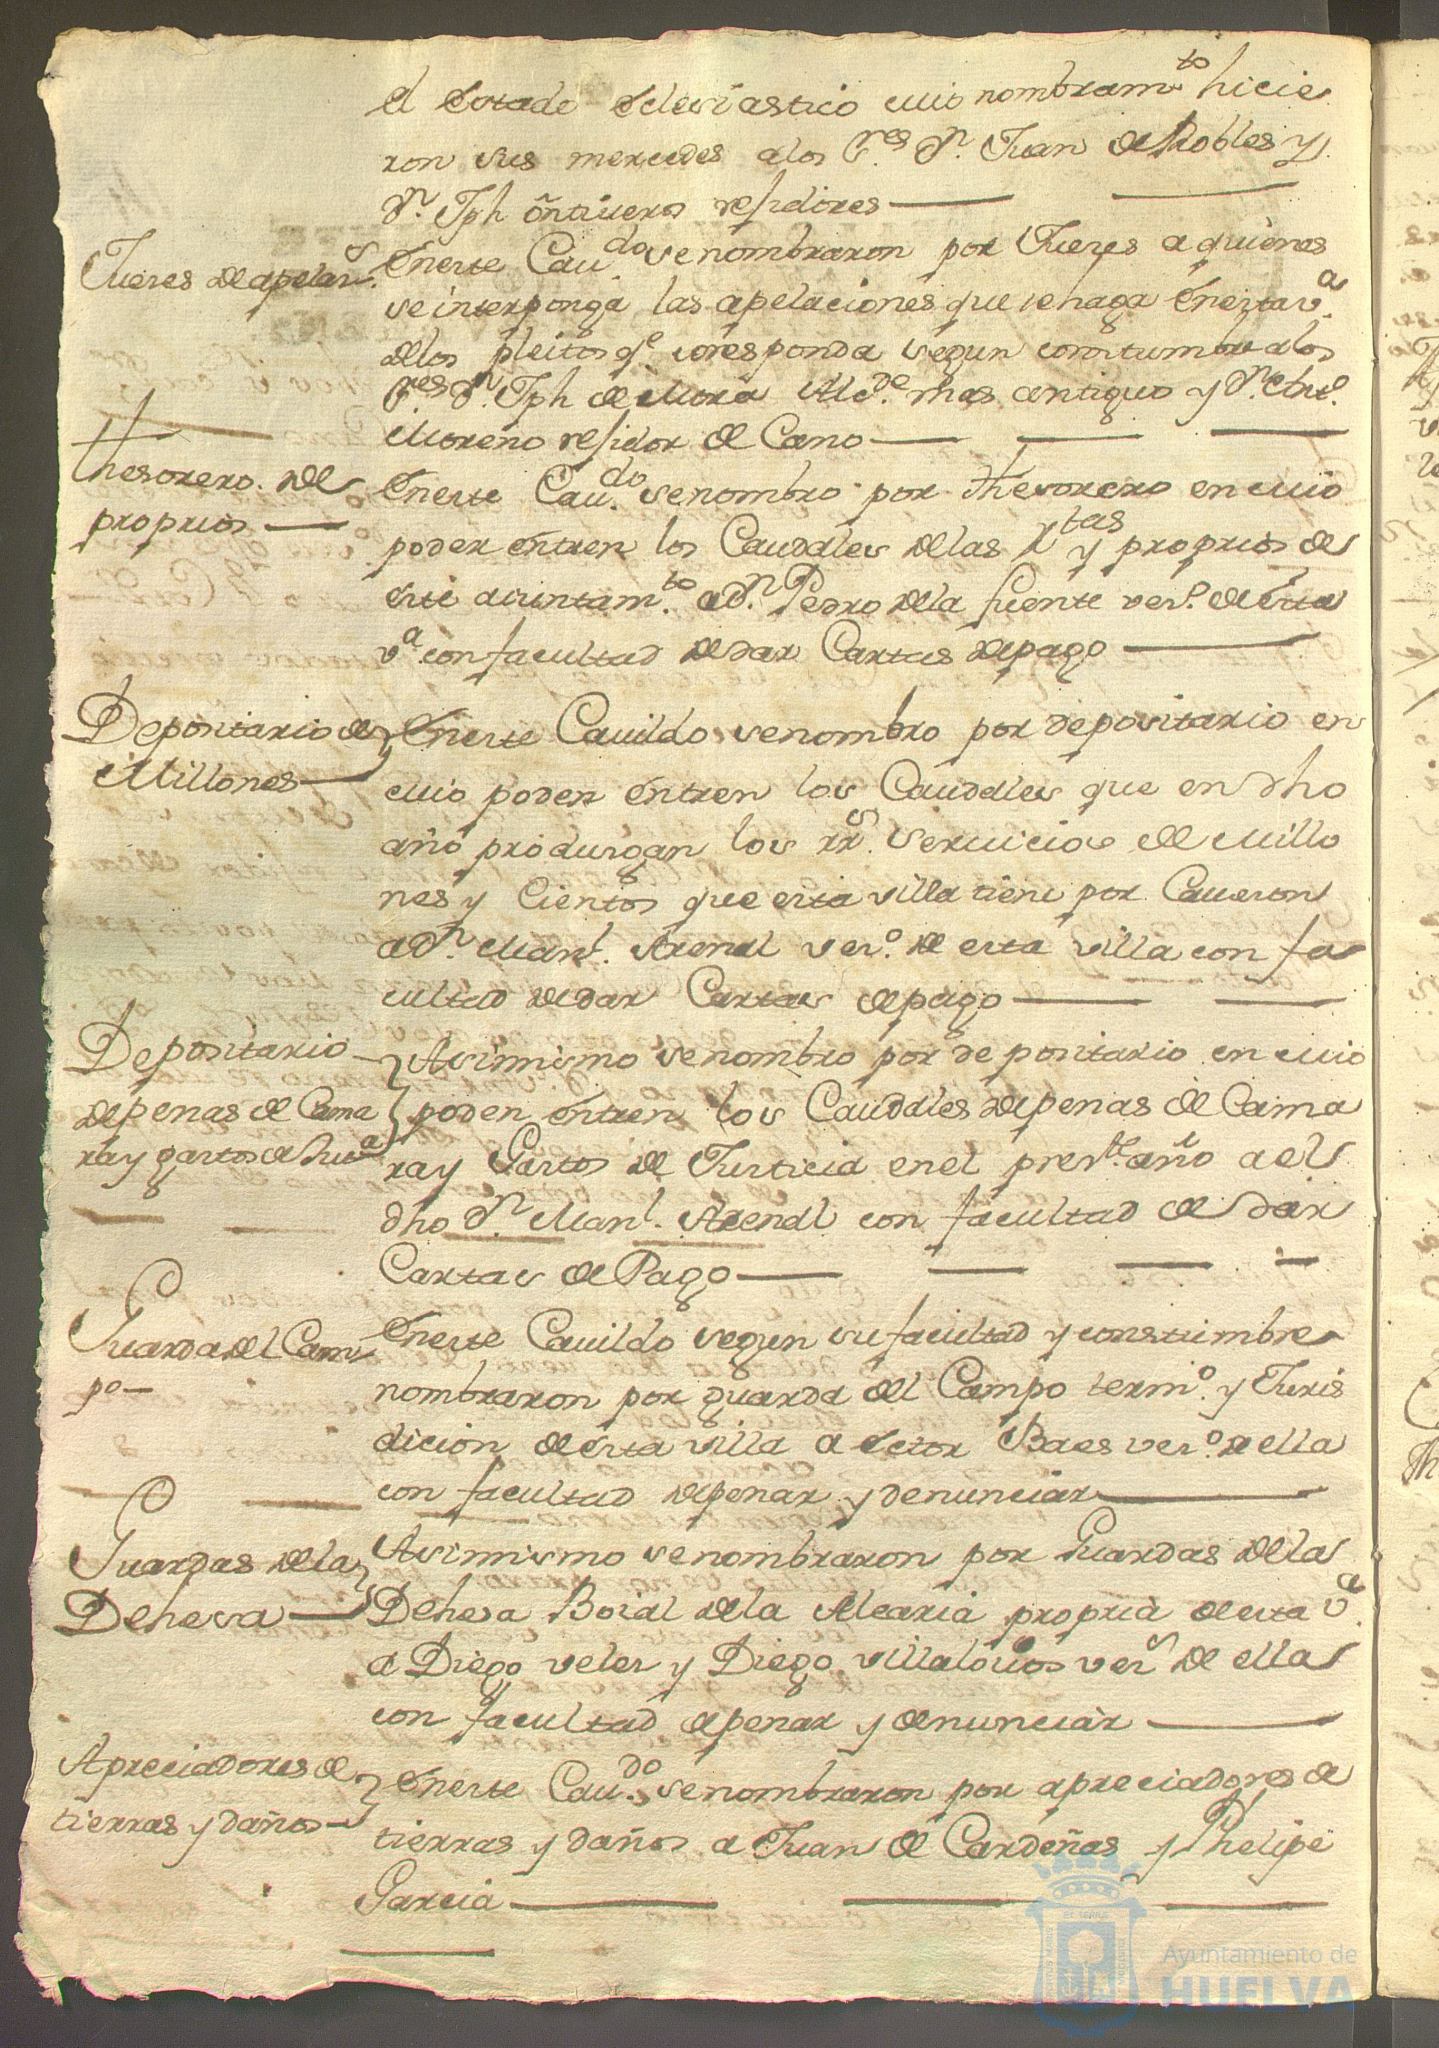 el Estado Eclesiastico cuio nombram.to hicie
ron sus mercedes a los S.res D.n Juan de Robles y
D.n Jph Ontiveros residores
Jueces de apelas.s
En este Cau.do se nombraron por Jueces a quienes
se interponga las apelaciones que se haga En esta v.a
de los pleitos q.e coresponda segun constumbre a los
S.res D.n Jph de Mora Alc.de mas antiguo y D.n
Moreno residor de Cano
thesorero de
proprios
En este Cau.do se nombro por thesorero en cuio
poder entren los Caudales de las R.tas y proprios de
este aiuntam.to a D.n Pedro de la fuente vez.o de Esta
v.a con facultad de dar Cartas de pago
Depositario de
Millones
En este Cauildo se nombro por depositario en
cuio poder entren los Caudales que en dho
año produsgan los rr.s seruicios de Millo
nes y Cientos que esta villa tiene por Caueson
a D.n Man.l Arenal vez.o de esta villa con fa
cultad de dar Cartas de pago
Depositario
de penas de Cama
ra y gastos de Just.a
Asimismo se nombro por depositario en cuio
poder entren los Caudales de penas de Cama
ra y Gastos de Justicia en el pres.te año a el
dho D.n Man.l Arenal con facultad de dar
Cartas de Pago
Guarda del Cam
po
En este Cauildo segun su facultad y constumbre
nombraron por guarda del Campo term.o y Juris
dicion de esta villa a Ector Baes vez.o de ella
con facultad de penar y denunciar
Guardas de la
Dehesa
Asimismo se nombraron por Guardas de la
Dehesa Boial de la Alcaria propria de esta v.a
a Diego veles y Diego villalouos vez.s de ella
con facultad de penar y denunciar
Apreciadores de
tierras y daños
En este Cau.do se nombraron por apreciadores de
tierras y daños a Juan de Cardeñas y Phelipe
Garcia
Ayuntamiento de
HUELVA